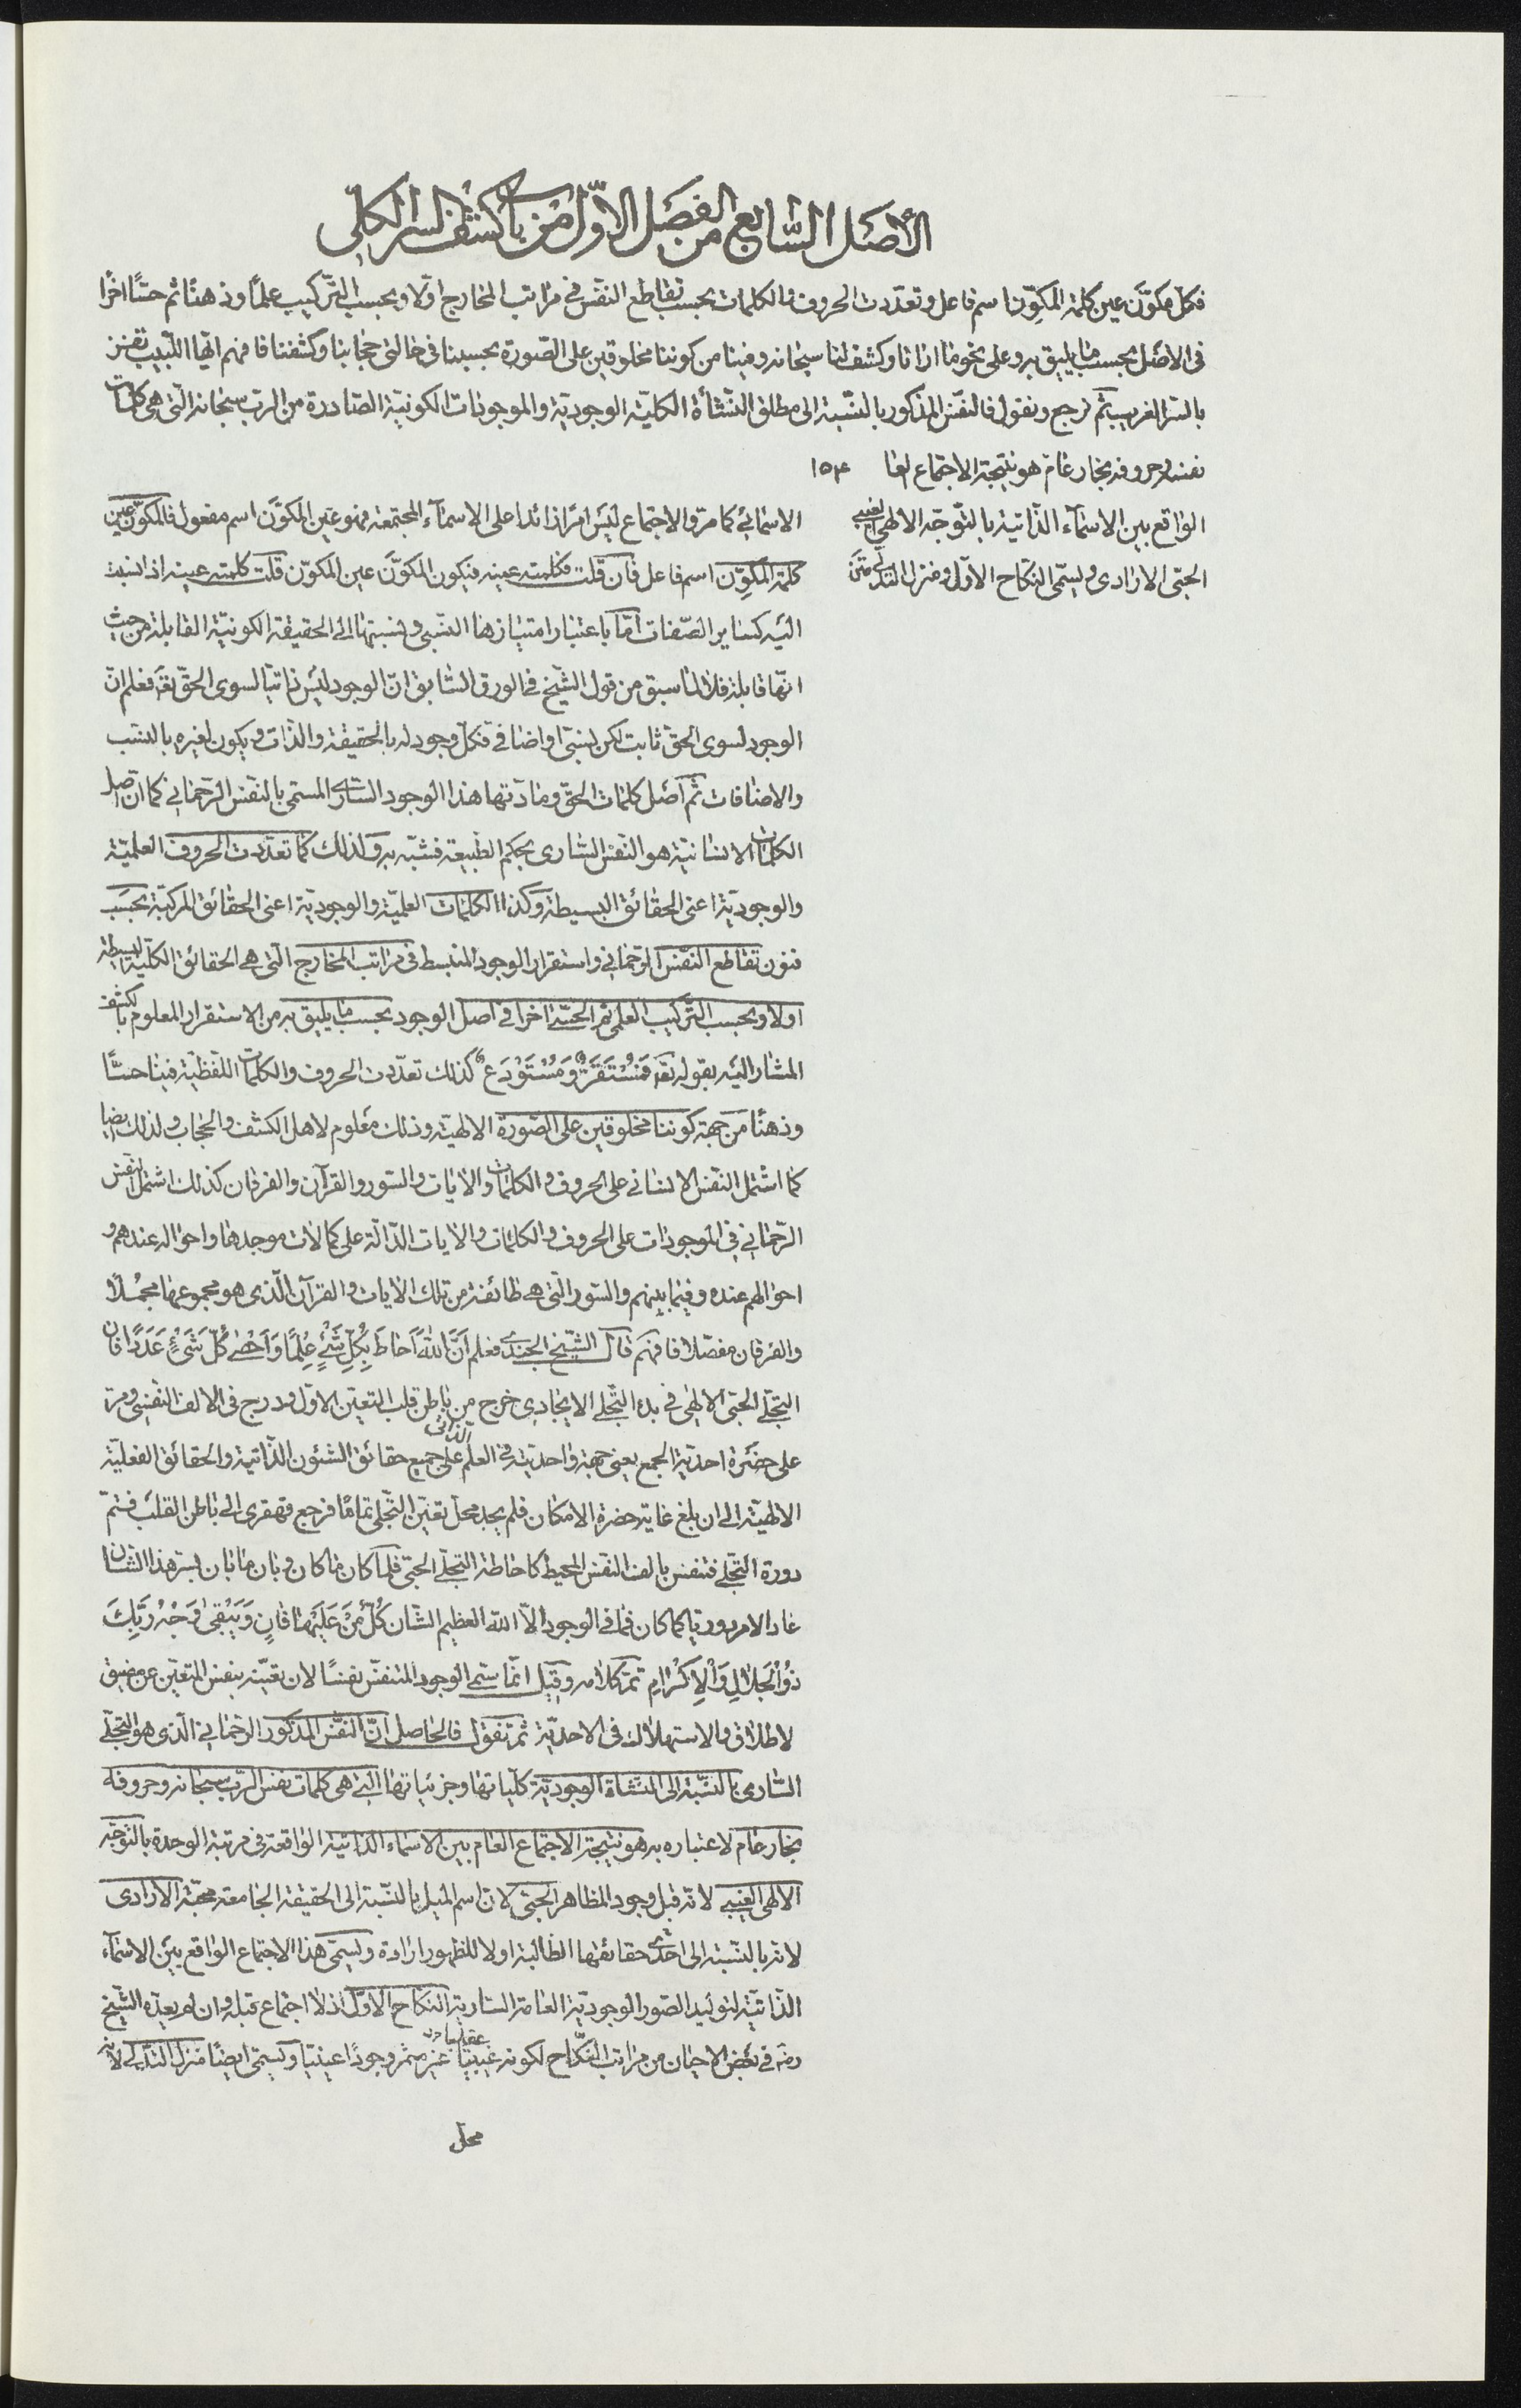 الأصل السابع من الفصل الاول من باب كشف السر الكلي
فكل مكوَّن عين كلمة المكوِّن اسم فاعل وتعدّدت الحروف والكلمات بحسب تقاطع النفس في مراتب المخارج اوّلا وبحسب التركيب علمًا وذهنًا ثم حسًّا اخرًا
في الاصل بحسب ما يليق به وعلى نحو ما ارانا وكشف لنا سبحانه وفينا من كوننا مخلوقين على الصّورة بحسبنا في حالتي حجابنا وكشفنا فافهم ايّها اللّبيب تفز
بالسر الغريب ثم نرجع ونقول فالنفس المذكور بالنّسبة الى مطلق النشأة الكليّة الوجوديّة والموجودات الكونيّة الصّادرة من الرب سبحانه الّتي هى كلمات
نفسه وحروفه بخار عام هو نتيجة الاجتماع العا ١٥٣
الواقع بين الاسمآء الذّاتيّة بالتوجّه الالهي الغيبي
الحبّى الارادى ويسمّى النكاح الاوّل ومنزل التدلّي متن
الاسمائي كما مرّ والاجتماع ليس امرًا زائدا على الاسمآء المجتمعة فهو عين المكوَّن اسم مفعول فالمكوَّن عين
كلمة المكوِّن اسم فاعل فان قلت فكلمته عينه فيكون المكوَّن عين المكوِّن قلت كلمته عينه اذا نسبت
اليه كساير الصّفات امّا باعتبار امتيازها النّسبي ونسبتها الى الحقيقة الكونيّة القابلة من حيث
انّها قابلة فلا لما سبق من قول الشّيخ في الورق السّابق انّ الوجود ليس ذاتيّا لسوى الحقّ تعالى فعلم انّ
الوجود لسوى الحق ثابت لكن نسبيّ او اضافي فكلّ وجود له بالحقيقة والذّات ويكون لغيره بالنسب
والاضافات ثم اصل كلمات الحقّ ومادّتها هذا الوجود السّاري المسمّى بالنفس الرّحماني كما انّ اصل
الكلمات الانسانيّة هو النّفس السّارى بحكم الطّبيعة فشبّه به ولذلك كما تعدّدت الحروف العلميّة
والوجوديّة اعنى الحقائق البسيطة وكذا الكلمات العلميّة والوجوديّة اعنى الحقائق المركّبة بحسب
فنون تقاطع النّفس الرّحماني واستقرار الوجود المنبسط في مراتب المخارج الّتى هى الحقائق الكلّية البسيطة
اولا وبحسب التّركيب العلمي ثمّ الحسّي اخرا في اصل الوجود بحسب ما يليق به من الاستقرار المعلوم بالكشف
المشار اليه بقوله تعالى فَمُسْتَقَرٌّ وَمُسْتَوْدَعٌ كذلك تعدّدت الحروف والكلمات اللّفظيّة فينا حسًّا
وذهنًا من جهة كوننا مخلوقين على الصّورة الالهيّة وذلك معلوم لاهل الكشف والحجاب ولذلك ايضا
كما اشتمل النّفس الانساني على الحروف والكلمات والايات والسّور والقرآن والفرقان كذلك اشتمل النّفس
الرّحماني في الموجودات على الحروف والكلمات والايات الدّالّة على كمالات موجدها واحواله عندهم و
احوالهم عنده وفيما بينهم والسّور الّتى هي طائفة من تلك الايات والقرآن الّذى هو مجموعها مجملًا
والفرقان مفصّلا فافهم قال الشّيخ الجندي فعلم اَنَّ اللّٰهَ اَحاطَ بِكُلِّ شَيْءٍ عِلْمًا وَاَحْصى كُلَّ شَيْءٍ عَدَدًا فان
التجلّى الحبّى الالهى في بدء التّجلّي الايجادي خرج من باطن قلب التعيّن الاوّل ودرج في الالف النّفسي ومرّ
على حضرة احديّة الجمع يعنى جهة واحديّة في العلم الذّاتي على جميع حقائق الشئون الذّاتية والحقائق الفعليّة
الالهيّة الى ان بلغ غاية حضرة الامكان فلم يجد محلّ تعيّن التّجلّى تمامًا فرجع قهقرى الى باطن القلب فتمّ
دورة التّجلّى فتنفس بالف النّفس المحيط كاحاطة التجلّي الحبّي فلما كان ما كان وبان ما بان بسرّ هذا الشّان
عاد الامر دوريا كما كان فما في الوجود الّا اللّٰه العظيم الشّان كُلُّ مَنْ عَلَيْها فَانٍ وَيَبْقى وَجْهُ رَبِّكَ
ذُو الْجَلالِ وَالْاِكْرامِ تمّ كلامه وقيل انّما سمّي الوجود المتنفّس نفسًا لان تعيّنه بنفس المتعيّن عن مضيق
لاطلاق والاستهلاك فى الاحديّة ثمّ نقول فالحاصل انّ النّفس المذكور الرّحماني الّذى هو التجلّي
السّارى بالنّسبة الى النشأة الوجوديّة كلّياتها وجزئياتها الّتى هى كلمات نفس الرّب سبحانه وحروفه
بخار عام لاعتباره به هو نتيجة الاجتماع العام بين الاسماء الذّاتية الواقعة فى مرتبة الوحدة بالتوجّه
الالهى الغيبي لانّه قبل وجود المظاهر الحبّي لانّ اسم الميل بالنّسبة الى الحقيقة الجامعة محبّة الارادى
لانّه بالنّسبة الى احدى حقائقها الطّالبة اولا للظهور ارادة ويسمّى هذا الاجتماع الواقع بين الاسمآء
الذّاتيّة لتوليد الصّور الوجوديّة العامّة السّارية النكاح الاوّل اذ لا اجتماع قبله وان لم يعدّه الشّيخ
رضه في بعض الاحيان من مراتب النّكاح لكونه غيبيّا غير مثمر وجودًا عينيّا ويسمّى ايضًا منزل التّدلّي لانّه
محل